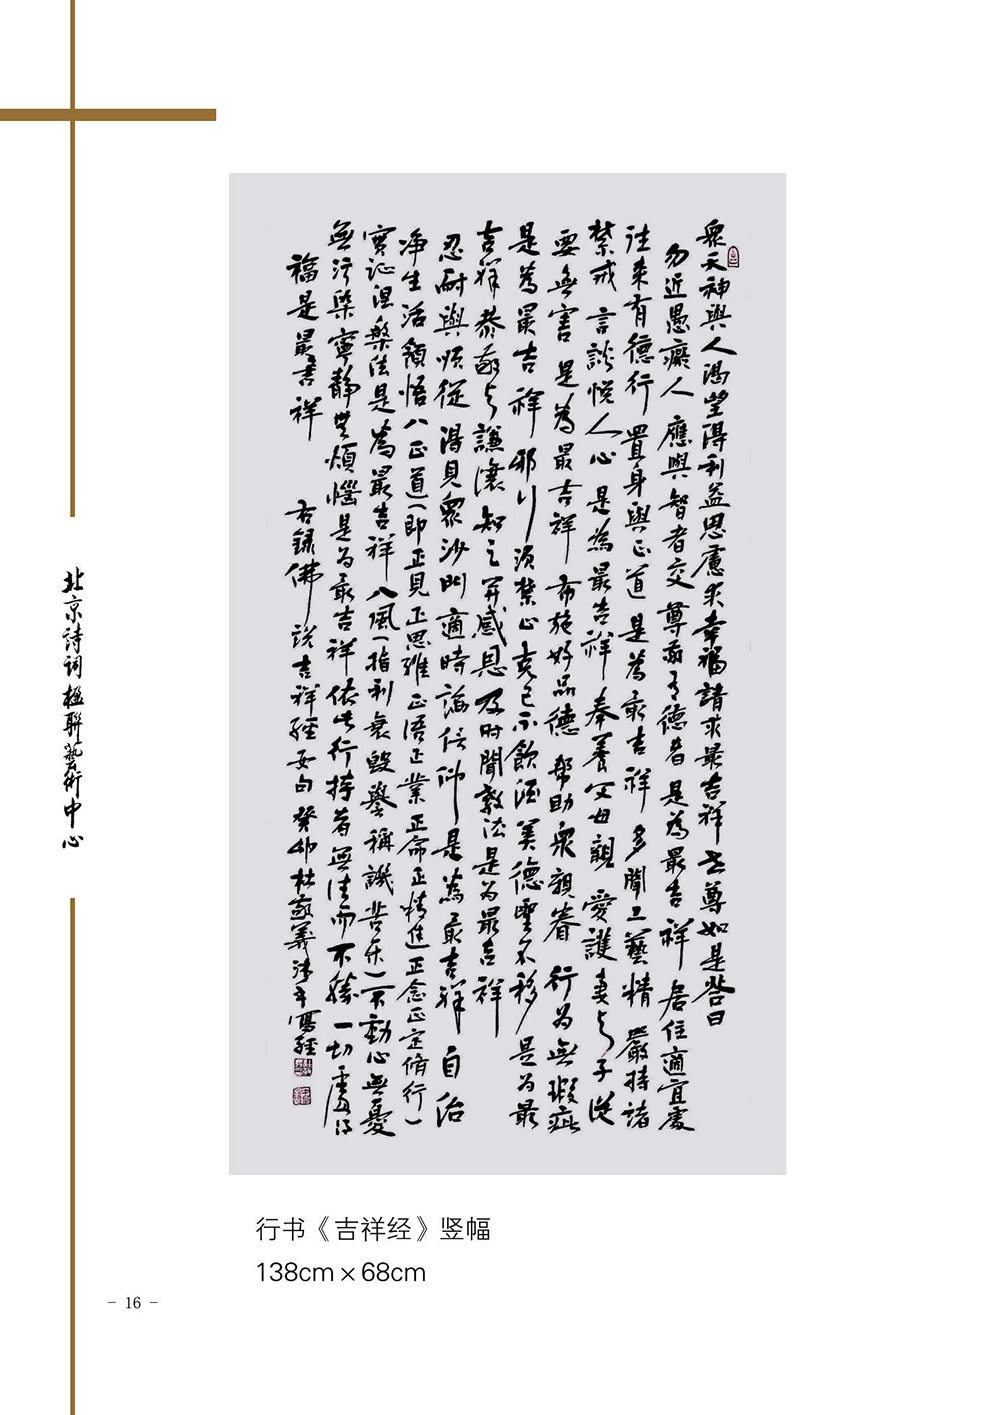 眾天神與人渴望得利益思慮求幸福請求最吉祥世尊如是答曰
勿近愚癡人 應與智者交 尊敬有德者 是為最吉祥 居住適宜處
往来有德行 置身與正道 是為最吉祥 多聞工藝精 嚴持諸
禁戒 言談悅人心 是為最吉祥 奉養父母親 愛護妻与子 從
要無害 是為最吉祥 布施好品德 幫助眾親眷 行為無瑕疵
是為最吉祥 邪行須禁止 克己不飲酒 美德堅不移 是为最
吉祥 恭敬与謙讓 知足并感恩 及時聞教法 是为最吉祥
忍耐與順從 得見眾沙門 適時論信仰 是為最吉祥 自治
净生活 領悟八正道(即正見正思維正语正業正命正精進正念正定脩行)
實证涅槃法 是為最吉祥 八風(指利衰毁譽稱譏苦乐)不動心 無憂
無污染 寧静無煩惱 是为最吉祥 依此行持者 無往而不勝 一切處得
福是最吉祥 右録佛说吉祥經 癸卯杜敬義 寫經
北京詩詞楹聯藝術中心
行书《吉祥经》竖幅
138cm×68cm
- 16 -